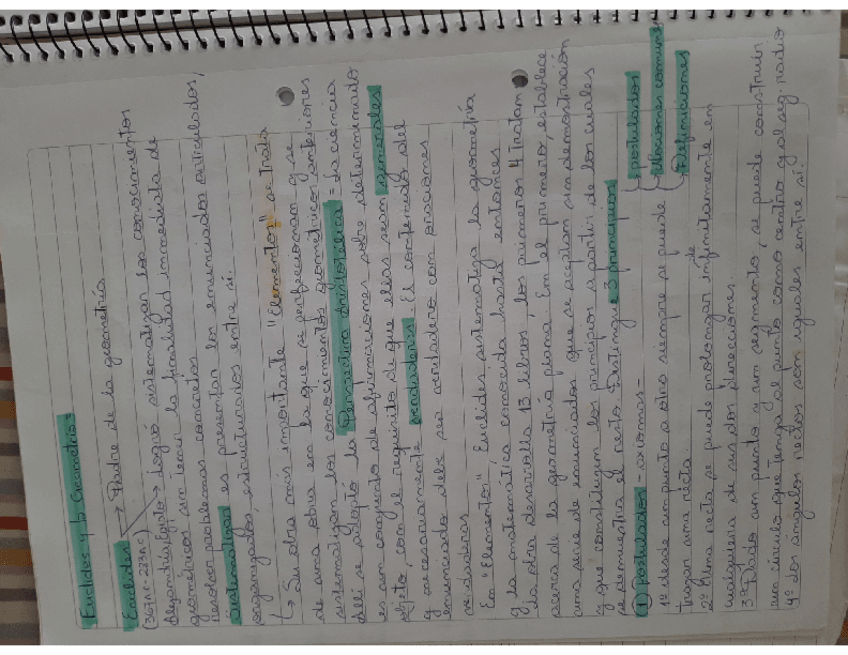 Euclides y la Geometría
Euclides → Padre de la geometría
Alejandría, Egipto → Logró sistematizar los conocimientos
geométricos sin tener la finalidad inmediata de
resolver problemas concretos
sistematizar es presentar los enunciados articulados,
organizados, estructurados entre sí.
↳ Su obra más importante "Elementos" se trata
de una obra en la que se perfeccionan y se
sistematizan los conocimientos geométricos anteriores
Allí se adoptó la Perspectiva aristotélica = La ciencia
es un conjunto de afirmaciones sobre determinado
objeto, con el requisito de que ellas sean generales
y necesariamente verdaderas. El contenido del
enunciado debe ser verdadero con oraciones
verdaderas
En "Elementos" Euclides sistematiza la geometría
y la matemática conocida hasta entonces
La obra desarrolla 13 libros, los primeros 4 tratan
acerca de la geometría plana. En el primero, establece
una serie de enunciados que se aceptan sin demostración
y que constituyen los principios a partir de los cuales
se demuestra el resto. Distingue 3 principios
postulados
Nociones comunes
Definiciones
① postulados - axiomas -
1º desde un punto a otro siempre se puede
trazar una recta
2º Una recta se puede prolongar infinitamente en
cualquiera de sus dos direcciones.
3º Dado un punto y un segmento, se puede construir
un círculo que tenga al punto como centro y al seg. radio
4º Los ángulos rectos son iguales entre sí.